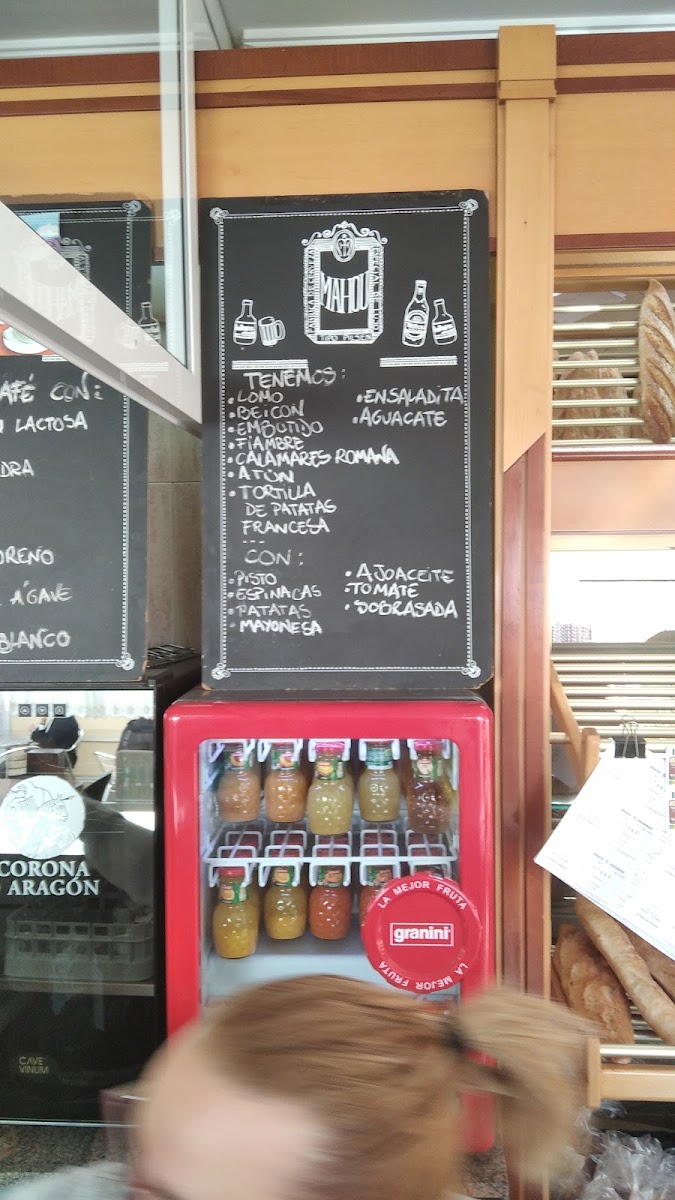 MAHOU
TIPO PILSEN
TENEMOS:
• LOMO
• BEICON
• EMBUTIDO
• FIAMBRE
• CALAMARES ROMANA
• ATÚN
• TORTILLA
DE PATATAS
FRANCESA
---
• ENSALADITA
• AGUACATE
CON:
• PISTO
• ESPINACAS
• PATATAS
• MAYONESA
• AJOACEITE
• TOMATE
• SOBRASADA
AFÉ CON:
LACTOSA
DRA
ORENO
ÁGAVE
BLANCO
CORONA
ARAGÓN
CAVE
VINUM
LA MEJOR FRUTA
granini
LA MEJOR FRUTA